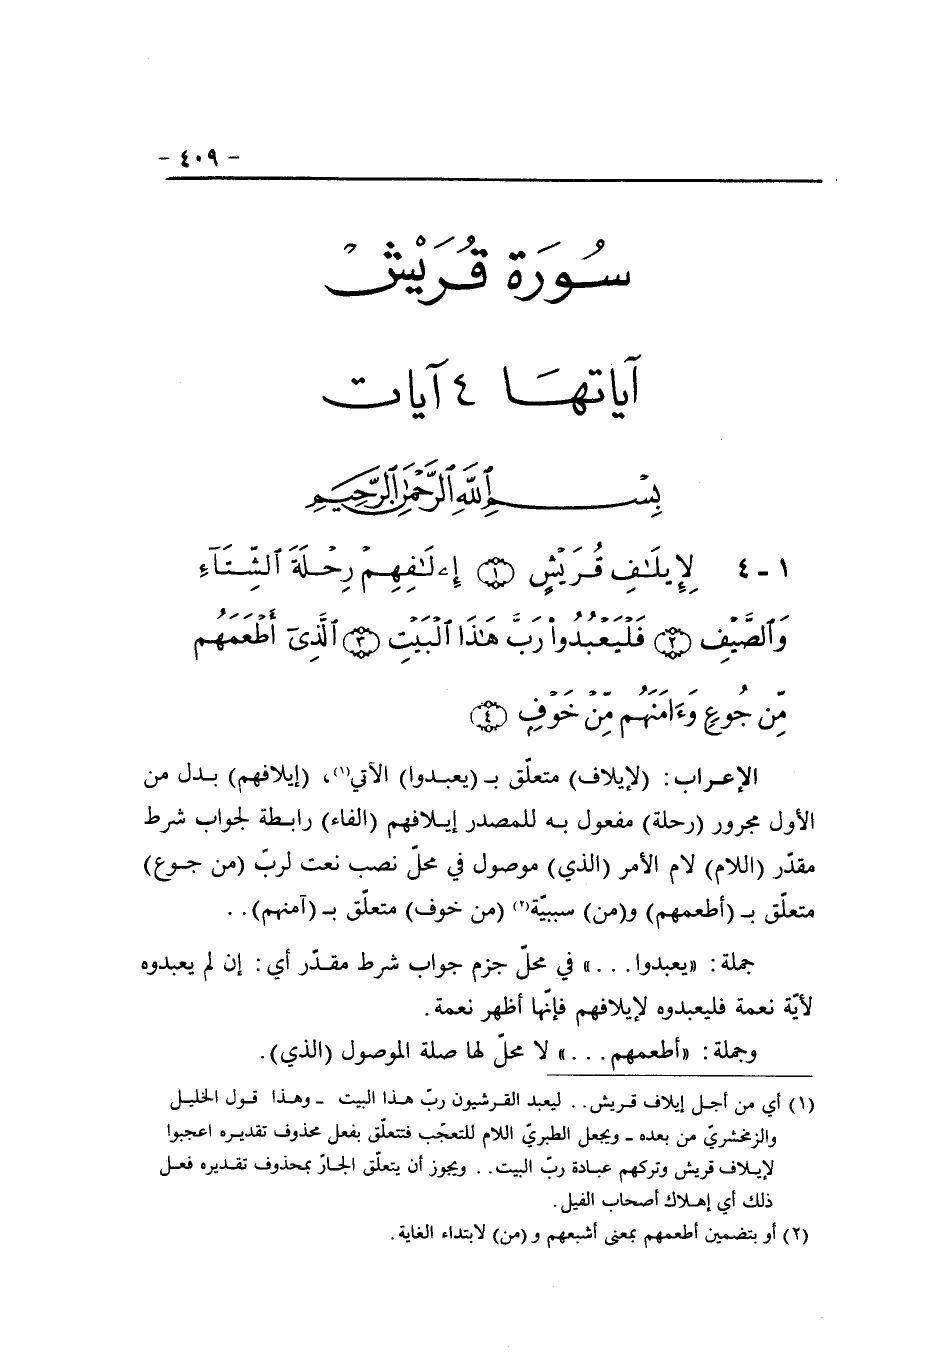 - ٤٠٩ -
سُورَة قُرَيْشٍ
آياتهَا ٤ آيات
بِسْمِ ٱللَّهِ ٱلرَّحْمَٰنِ ٱلرَّحِيمِ
١ - ٤ لِإِيلَٰفِ قُرَيْشٍ ﴿١﴾ إِۦلَٰفِهِمْ رِحْلَةَ ٱلشِّتَآءِ
وَٱلصَّيْفِ ﴿٢﴾ فَلْيَعْبُدُوا۟ رَبَّ هَٰذَا ٱلْبَيْتِ ﴿٣﴾ ٱلَّذِىٓ أَطْعَمَهُم
مِّن جُوعٍ وَءَامَنَهُم مِّنْ خَوْفٍۭ ﴿٤﴾
الإعراب: (لإيلاف) متعلّق بـ (يعبدوا) الآتي(١)، (إيلافهم) بدل من
الأول مجرور (رحلة) مفعول به للمصدر إيلافهم (الفاء) رابطة لجواب شرط
مقدّر (اللام) لام الأمر (الذي) موصول في محلّ نصب نعت لربّ (من جوع)
متعلّق بـ (أطعمهم) و(من) سببيّة(٢) (من خوف) متعلّق بـ (آمنهم)..
جملة: «يعبدوا...» في محلّ جزم جواب شرط مقدّر أي: إن لم يعبدوه
لأيّة نعمة فليعبدوه لإيلافهم فإنّها أظهر نعمة.
وجملة: «أطعمهم...» لا محلّ لها صلة الموصول (الذي).
(١) أي من أجل إيلاف قريش.. ليعبد القرشيون ربّ هذا البيت - وهذا قول الخليل
والزمخشريّ من بعده - ويجعل الطبريّ اللام للتعجّب فتتعلّق بفعل محذوف تقديره اعجبوا
لإيلاف قريش وتركهم عبادة ربّ البيت.. ويجوز أن يتعلّق الجارّ بمحذوف تقديره فعل
ذلك أي إهلاك أصحاب الفيل.
(٢) أو بتضمين أطعمهم بمعنى أشبعهم و (من) لابتداء الغاية.